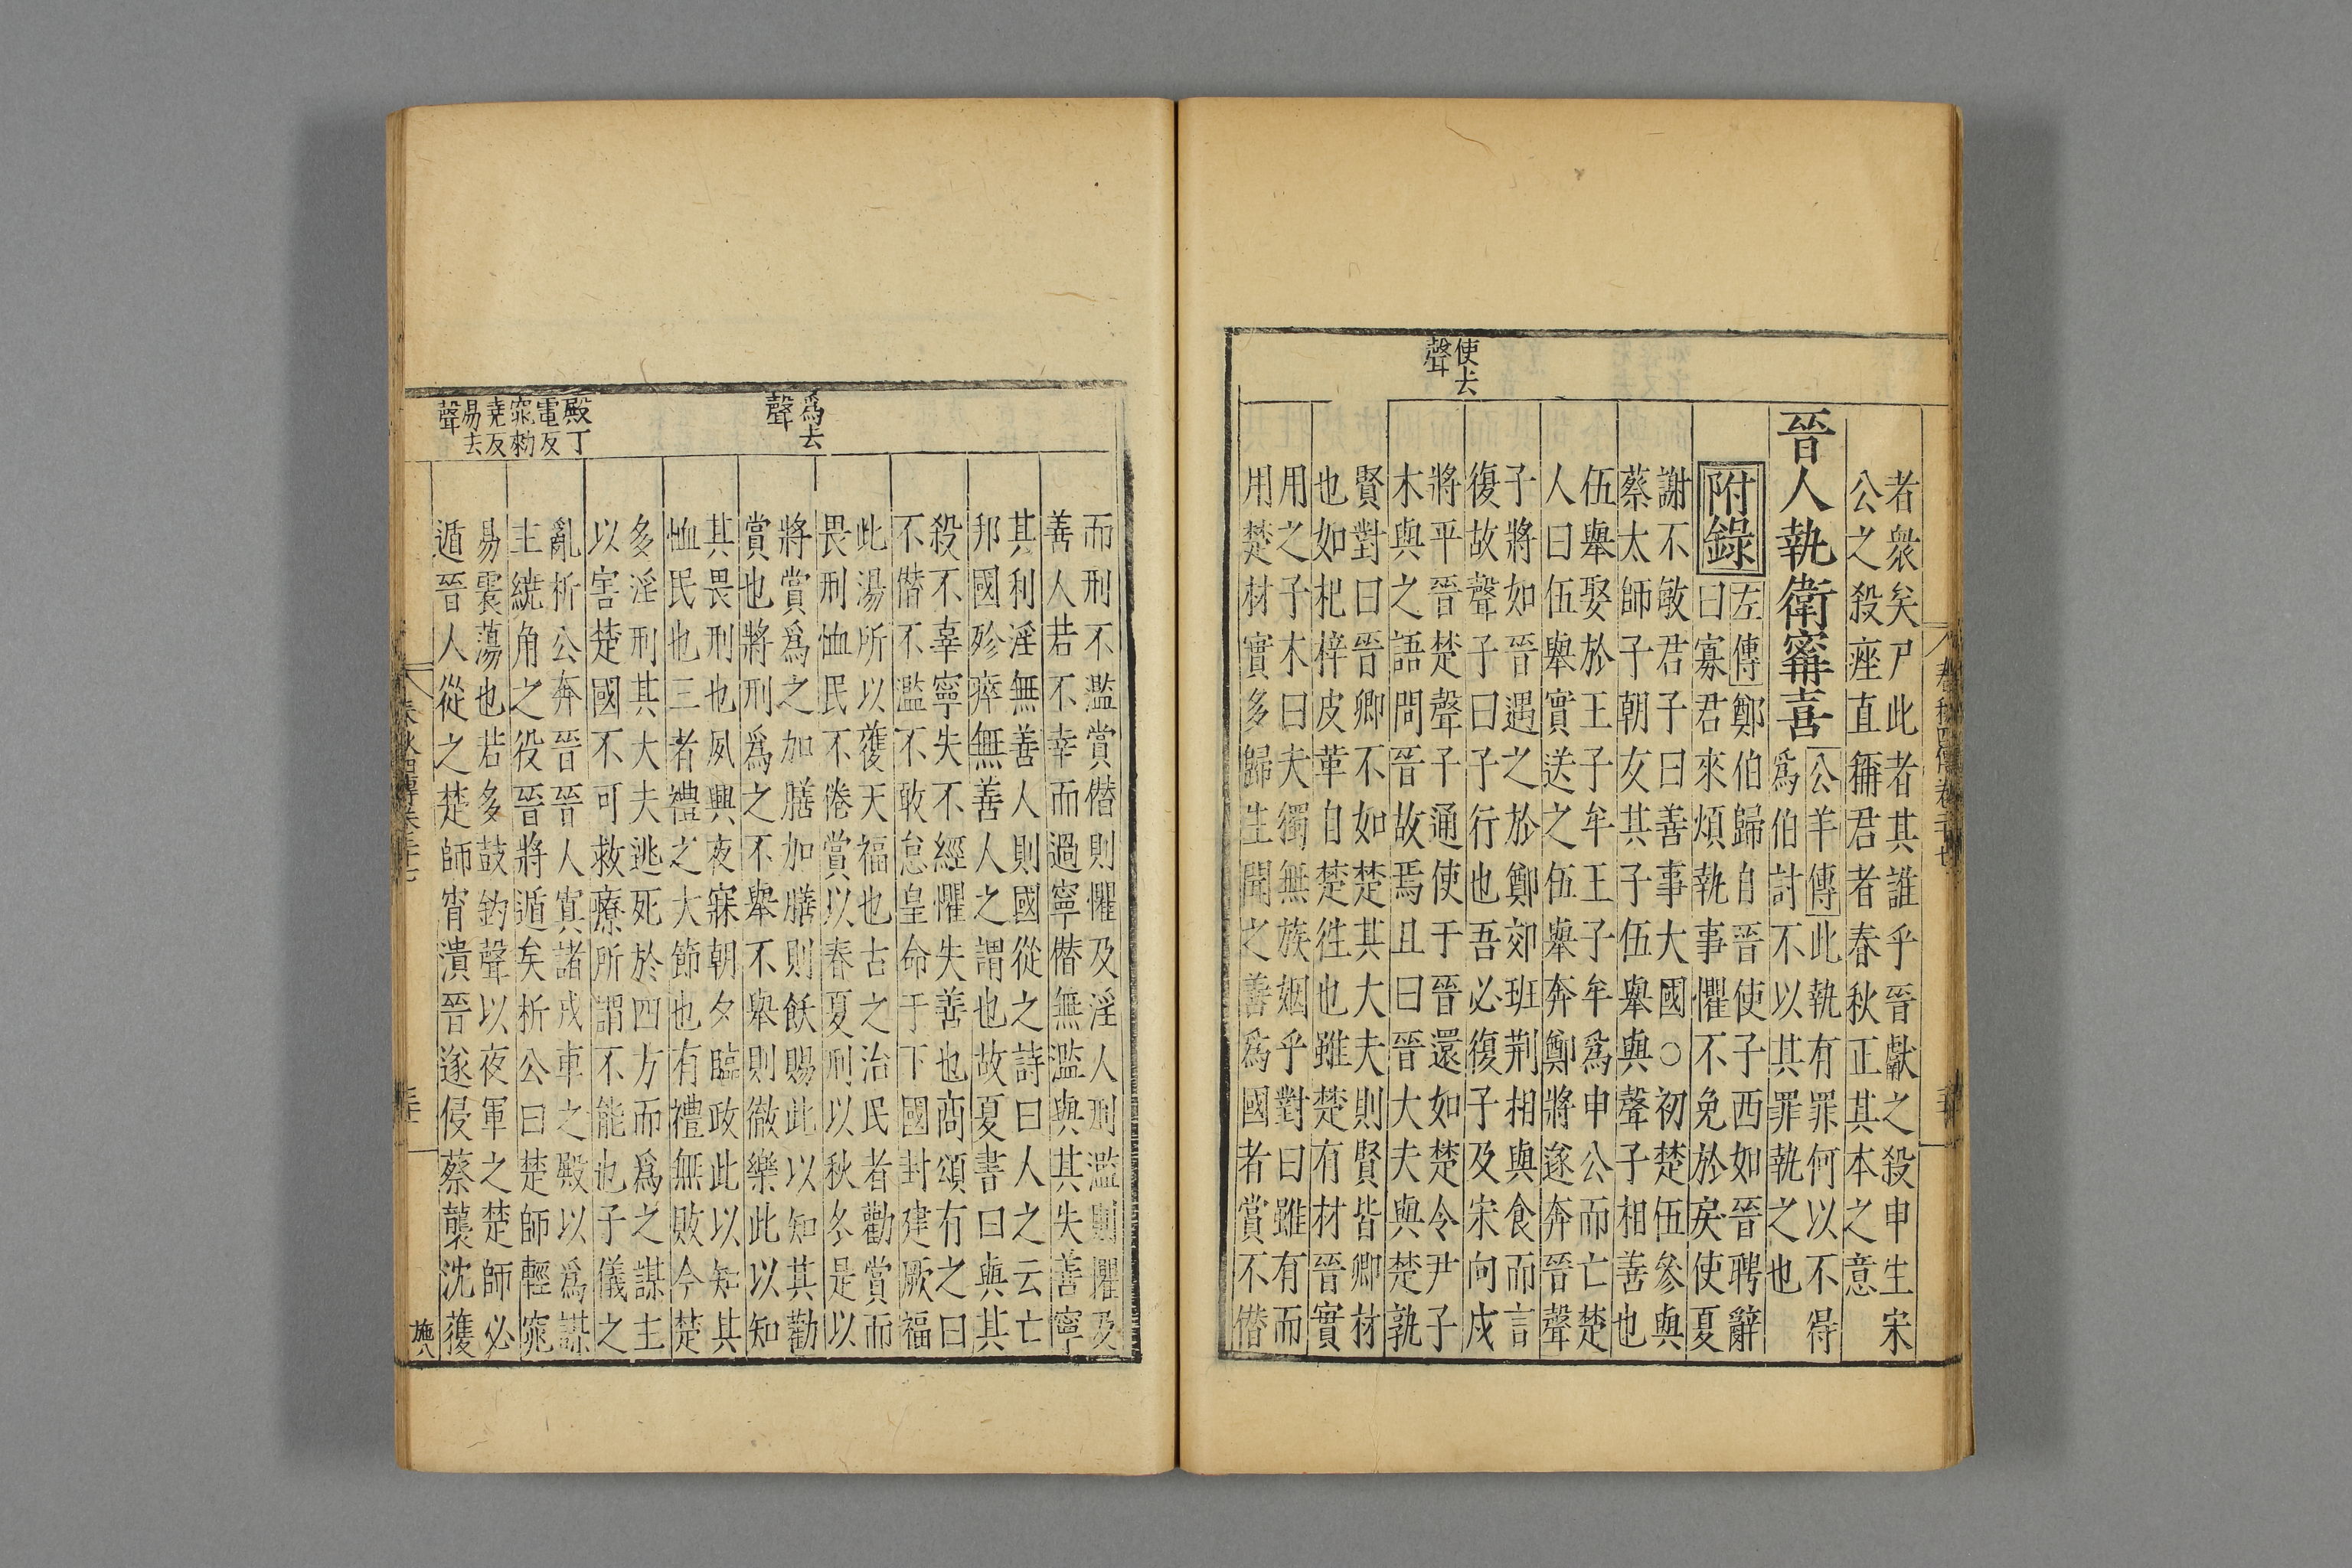 使去
聲
者衆矣尸此者其誰乎晉獻之殺申生宋
公之殺痤直稱君者春秋正其本之意
晉人執衛甯喜
公羊傳此執有罪何以不得
爲伯討不以其罪執之也
附錄
左傳鄭伯歸自晉使子西如晉聘辭
曰寡君來煩執事懼不免於戾使夏
謝不敏君子曰善事大國○初楚伍參與
蔡太師子朝友其子伍舉與聲子相善也
伍舉娶於王子牟王子牟爲申公而亡楚
人曰伍舉實送之伍舉奔鄭將遂奔晉聲
子將如晉遇之於鄭郊班荆相與食而言
復故聲子曰子行也吾必復子及宋向戌
將平晉楚聲子通使于晉還如楚令尹子
木與之語問晉故焉且曰晉大夫與楚孰
賢對曰晉卿不如楚其大夫則賢皆卿材
也如杞梓皮革自楚徃也雖楚有材晉實
用之子木曰夫獨無族姻乎對曰雖有而
用楚材實多歸生聞之善爲國者賞不僭
春秋四傳卷二十七
爲去
聲
殿丁
電反
窕勑
堯反
易去
聲
而刑不濫賞僭則懼及淫人刑濫則懼及
善人若不幸而過寧僭無濫與其失善寧
其利淫無善人則國從之詩曰人之云亡
邦國殄瘁無善人之謂也故夏書曰與其
殺不辜寧失不經懼失善也商頌有之曰
不僭不濫不敢怠皇命于下國封建厥福
此湯所以獲天福也古之治民者勸賞而
畏刑恤民不倦賞以春夏刑以秋冬是以
將賞爲之加膳加膳則飫賜此以知其勸
賞也將刑爲之不舉不舉則徹樂此以知
其畏刑也夙興夜寐朝夕臨政此以知其
恤民也三者禮之大節也有禮無敗今楚
多淫刑其大夫逃死於四方而爲之謀主
以害楚國不可救療所謂不能也子儀之
亂析公奔晉晉人寘諸戎車之殿以爲謀
主繞角之役晉將遁矣析公曰楚師輕窕
易震蕩也若多鼓鈞聲以夜軍之楚師必
遁晉人從之楚師宵潰晉遂侵蔡襲沈獲
春秋四傳卷二十七
施八